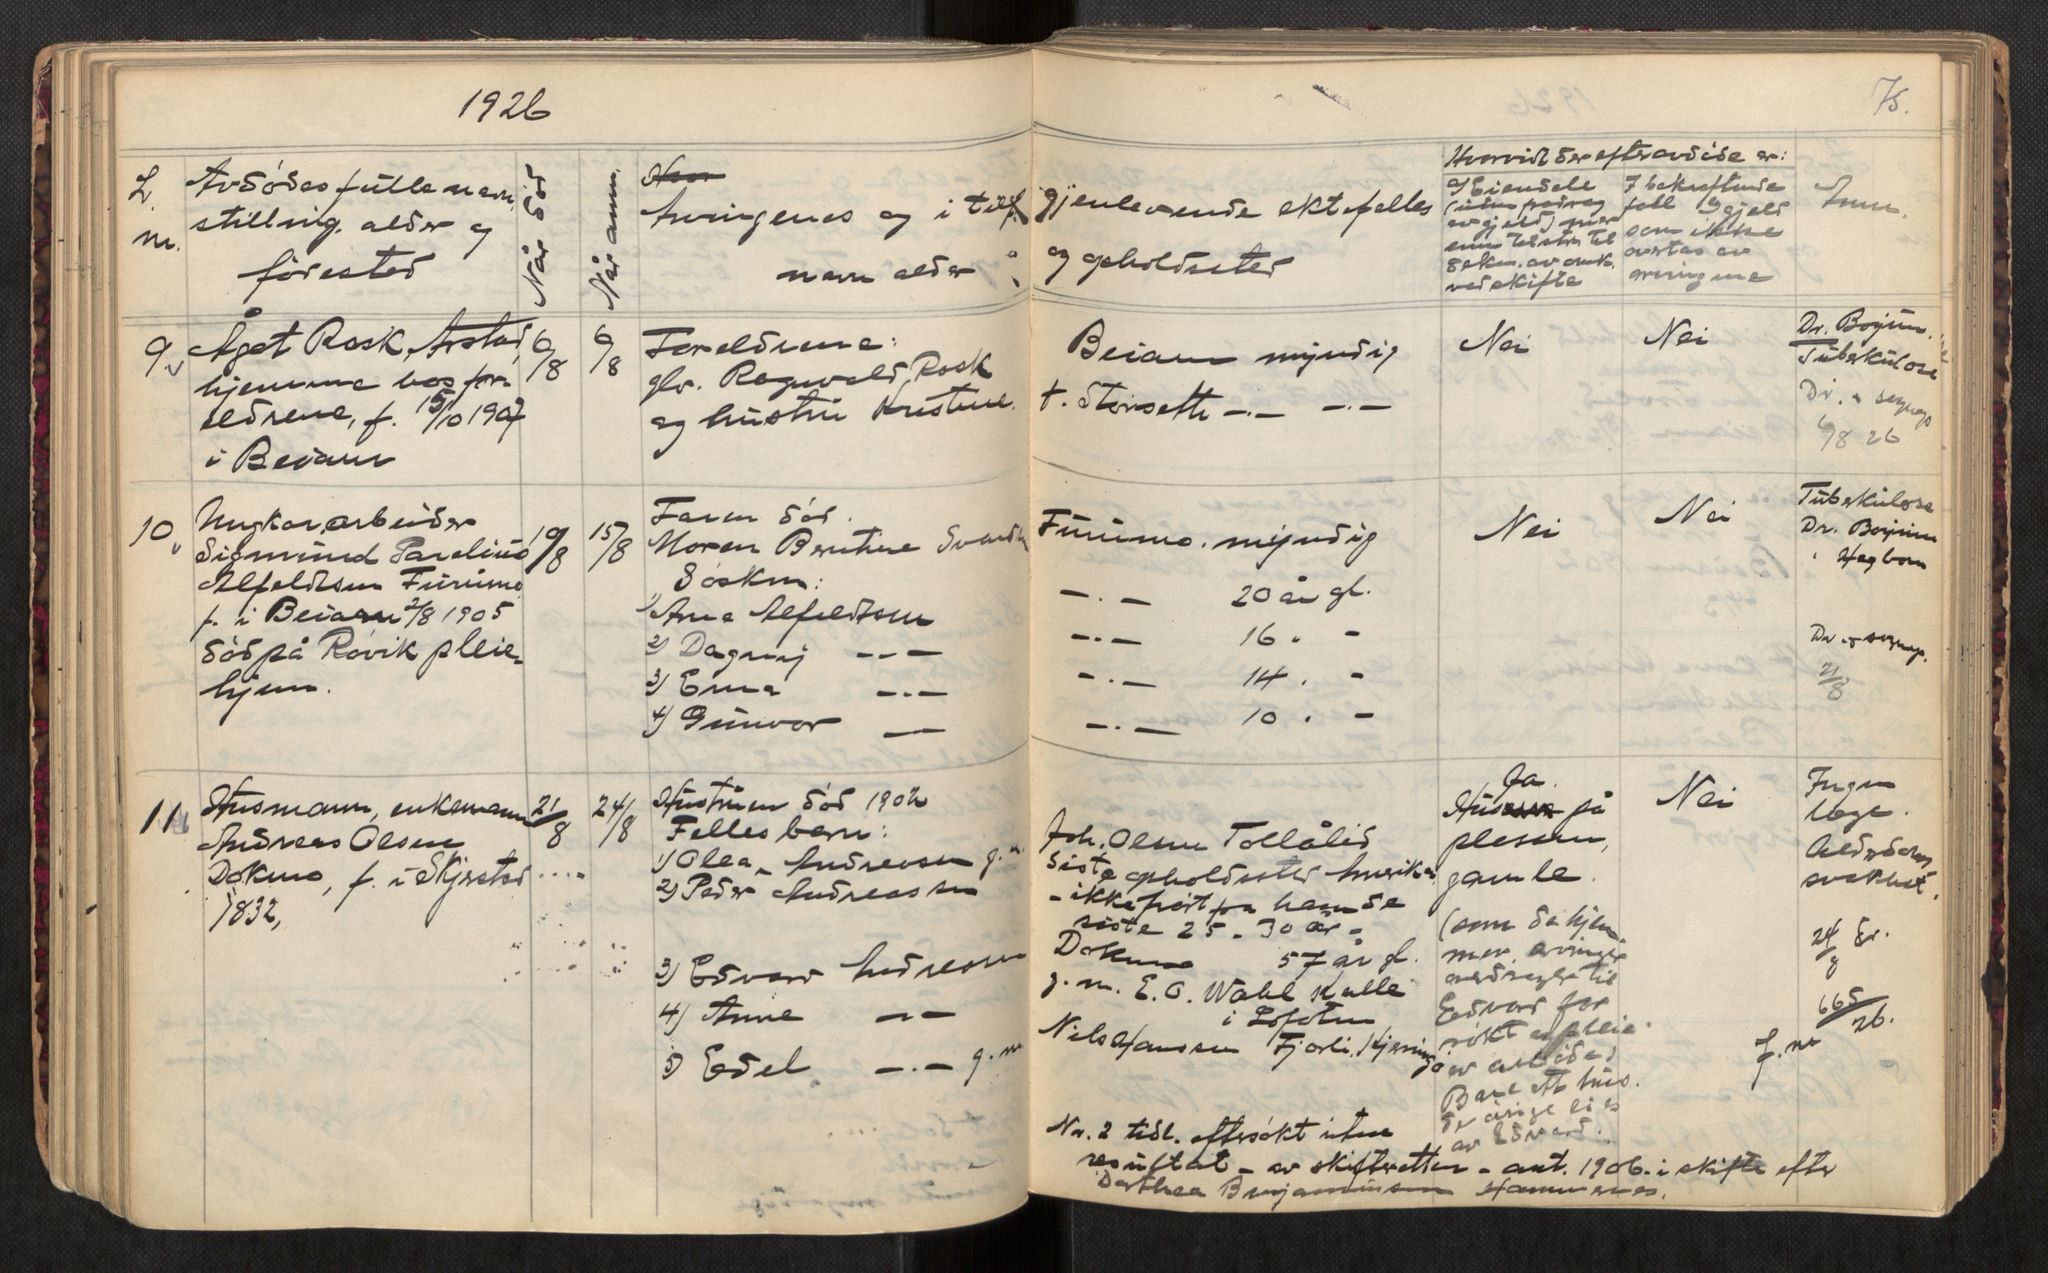 1926
75.
L.
nr.
Avdødes fulle navn,
stilling, alder og
fødested
Når død
Når anm.
Arvingenes og i tilf.
navn alder
gjenlevende ektefelles
og opholdssted
Hvorvidt der efter avdøde er:
a) Eiendele
(uten fradrag
av gjeld) mer
enn tilstr. til
ved skifte
I bekreftende
fall og gjeld
som ikke
overtas av
arvingene
Anm.
9
Åget Rosk, Arstad
hjemme hos for-
eldrene, f. 15/10 1907
i Beiarn
6/8
6/8
Foreldrene:
gbr. Ragnvald Rosk
og hustru Kristine.
Beiarn myndig
t. Storseth -.- -.-
Nei
Nei
Dr. Bojum
Tuberkulose
6/8 26
10
Ungkar, arbeider
Sigmund Parelius
Alfeldtsen Furumo
f. i Beiarn 2/8 1905
død på Røvik pleie-
hjem.
10/8
15/8
Faren død.
Moren Berntine
Søsken:
1) Anna Alfeldtsen
2) Dagny -.-
3) Erna -.-
4) Gunvor -
Furumo. myndig
-.- 20 år gl.
-.- 16 . -
-.- 14 . -
-.- 10 . -
Nei
Nei
Tuberkulose
Dr. Bojum
21/8
11
Husmann, enkemann
Andreas Olsen
Dokmo, f. i Skjerstad
1832,
21/8
24/8
Hustruen død 1902
Felles barn:
1) Olea Andreasen g.m.
2) Peder Andreassen
3) Edvard Andreassen
4) Anne -.-
5) Edel -.- g.m.
Joh. Olsen Tollålid
Siste opholdssted Amerika
- ikke hørt fra ham de
siste 25 - 30 år -
Dokmo 57 år gl.
g.m. E. O. Wahl Kalle
i Lofoten
Nils Hanssen Fjorli, Kjerringø
Ja.
Hus på
plassen,
gamle.
(som de hjem
mer. arvinger
Edvard for
røkt og pleie
av avdøde.)
Bare ett hus.
av Edvard.
Nei
Ingen
lege.
Alderdoms
svakhet.
24/8
665/26.
Nr. 2 tidl. eftersøkt uten
resultat - av skifteretten - ant. 1906 i skifte efter
Dorthea Benjaminsen Hammernes.